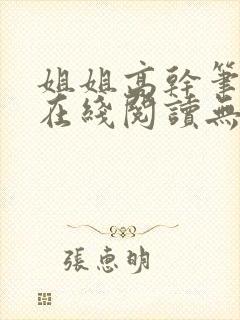 姐姐高幹筆
在綫閱讀無
張惠明